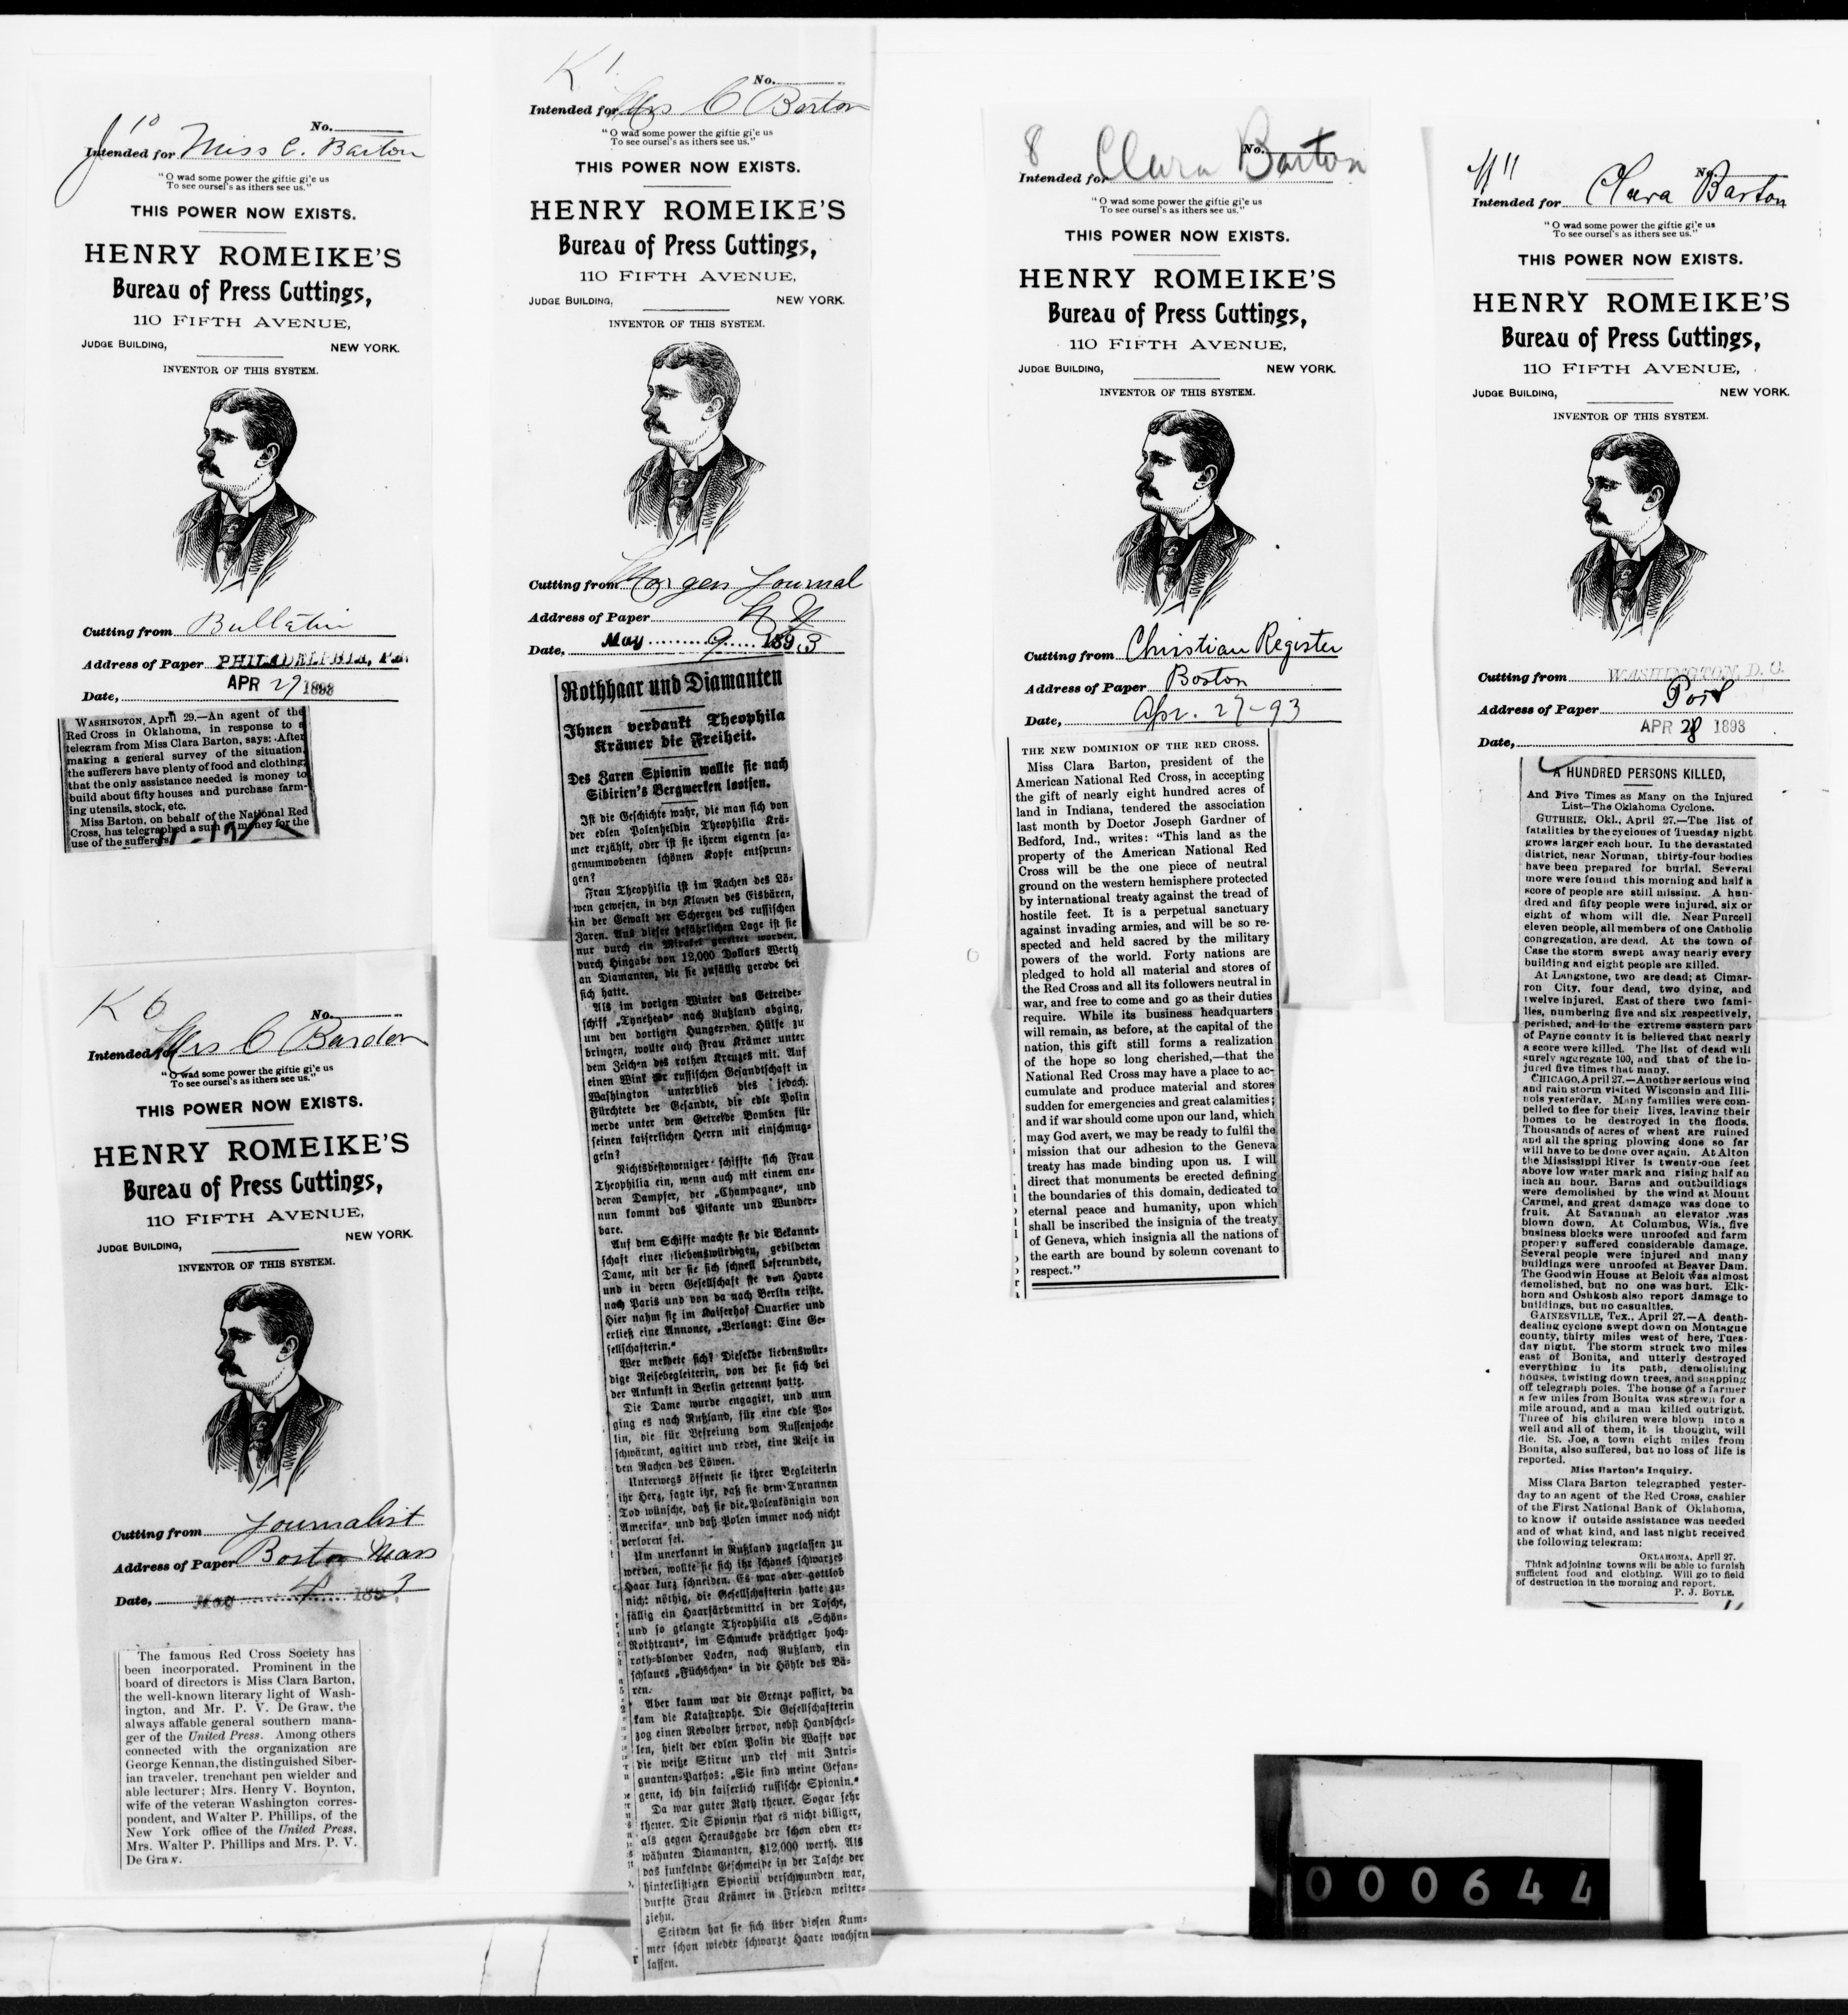 J 10
No.
Intended for Miss C. Barton
"O wad some power the giftie gi'e us
To see oursel's as ithers see us."
THIS POWER NOW EXISTS.
HENRY ROMEIKE'S
Bureau of Press Cuttings,
110 FIFTH AVENUE,
JUDGE BUILDING, NEW YORK.
INVENTOR OF THIS SYSTEM.
Cutting from Bulletin
Address of Paper PHILADELPHIA, PA.
Date, APR 29 1893
WASHINGTON, April 29.—An agent of the
Red Cross in Oklahoma, in response to a
telegram from Miss Clara Barton, says: After
making a general survey of the situation,
the sufferers have plenty of food and clothing;
that the only assistance needed is money to
build about fifty houses and purchase farm-
ing utensils, stock, etc.
Miss Barton, on behalf of the National Red
Cross, has telegraphed a sum of money for the
use of the sufferers.
K 6
No.
Intended for Mrs C Bardon
"O wad some power the giftie gi'e us
To see oursel's as ithers see us."
THIS POWER NOW EXISTS.
HENRY ROMEIKE'S
Bureau of Press Cuttings,
110 FIFTH AVENUE,
JUDGE BUILDING, NEW YORK.
INVENTOR OF THIS SYSTEM.
Cutting from Journalist
Address of Paper Boston Mass
Date, May 4 1893
The famous Red Cross Society has
been incorporated. Prominent in the
board of directors is Miss Clara Barton,
the well-known literary light of Wash-
ington, and Mr. P. V. De Graw, the
always affable general southern mana-
ger of the United Press. Among others
connected with the organization are
George Kennan, the distinguished Siber-
ian traveler, trenchant pen wielder and
able lecturer; Mrs. Henry V. Boynton,
wife of the veteran Washington corres-
pondent, and Walter P. Phillips, of the
New York office of the United Press,
Mrs. Walter P. Phillips and Mrs. P. V.
De Graw.
K 1
No.
Intended for Mrs C Barton
"O wad some power the giftie gi'e us
To see oursel's as ithers see us."
THIS POWER NOW EXISTS.
HENRY ROMEIKE'S
Bureau of Press Cuttings,
110 FIFTH AVENUE,
JUDGE BUILDING, NEW YORK.
INVENTOR OF THIS SYSTEM.
Cutting from Morgen Journal
Address of Paper N Y
Date, May 9 1893
Rothhaar und Diamanten
Ihnen verdankt Theophila
Krämer die Freiheit.
Des Zaren Spionin wollte sie nach
Sibirien's Bergwerken lootsen.
Ist die Geschichte wahr, die man sich von
der edlen Polenheldin Theophilia Krä-
mer erzählt, oder ist sie ihrem eigenen sa-
genumwobenen schönen Kopfe entsprun-
gen?
Frau Theophilia ist im Rachen des Lö-
wen gewesen, in den Klauen des Eisbären,
in der Gewalt der Schergen des russischen
Zaren. Aus dieser gefährlichen Lage ist sie
nur durch ein Mirakel gerettet worden,
durch Hingabe von 12,000 Dollars Werth
an Diamanten, die sie zufällig gerade bei
sich hatte.
Als im vorigen Winter das Getreide-
schiff „Tynehead“ nach Rußland abging,
um den dortigen Hungernden Hülfe zu
bringen, wollte auch Frau Krämer unter
dem Zeichen des rothen Kreuzes mit. Auf
einen Wink der russischen Gesandtschaft in
Washington unterblieb dies jedoch.
Fürchtete der Gesandte, die edle Polin
werde unter dem Getreide Bomben für
seinen kaiserlichen Herrn mit einschmug-
geln?
Nichtsdestoweniger schiffte sich Frau
Theophilia ein, wenn auch mit einem an-
deren Dampfer, der „Champagne“, und
nun kommt das Pikante und Wunder-
bare.
Auf dem Schiffe machte sie die Bekannt-
schaft einer liebenswürdigen, gebildeten
Dame, mit der sie sich schnell befreundete,
und in deren Gesellschaft sie von Havre
nach Paris und von da nach Berlin reiste.
Hier nahm sie im Kaiserhof Quartier und
erließ eine Annonce, „Verlangt: Eine Ge-
sellschafterin.“
Wer meldete sich? Dieselbe liebenswür-
dige Reisebegleiterin, von der sie sich bei
der Ankunft in Berlin getrennt hatte.
Die Dame wurde engagirt, und nun
ging es nach Rußland, für eine edle Po-
lin, die für Befreiung vom Russenjoche
schwärmt, agitirt und redet, eine Reise in
den Rachen des Löwen.
Unterwegs öffnete sie ihrer Begleiterin
ihr Herz, sagte ihr, daß sie dem Tyrannen
Tod wünsche, daß sie die „Polenkönigin von
Amerika“, und daß Polen immer noch nicht
verloren sei.
Um unerkannt in Rußland zugelassen zu
werden, wollte sie sich ihr schönes schwarzes
Haar kurz schneiden. Es war aber gottlob
nicht nöthig, die Gesellschafterin hatte zu-
fällig ein Haarfärbemittel in der Tasche,
und so gelangte Theophilia als „Schön-
Rothtraut“, im Schmucke prächtiger hoch-
roth-blonder Locken, nach Rußland, ein
schlaues „Füchschen“ in die Höhle des Bä-
ren.
Aber kaum war die Grenze passirt, da
kam die Katastrophe. Die Gesellschafterin
zog einen Revolver hervor, nebst Handschel-
len, hielt der edlen Polin die Waffe vor
die weiße Stirne und rief mit Intri-
guanten-Pathos: „Sie sind meine Gefan-
gene, ich bin kaiserlich russische Spionin.“
Da war guter Rath theuer. Sogar sehr
theuer. Die Spionin that es nicht billiger,
als gegen Herausgabe der schon oben er-
wähnten Diamanten, $12,000 werth. Als
das funkelnde Geschmeide in der Tasche der
hinterlistigen Spionin verschwunden war,
durfte Frau Krämer in Frieden weiter-
ziehn.
Seitdem hat sie sich über diesen Kum-
mer schon wieder schwarze Haare wachsen
lassen.
8
No.
Intended for Clara Barton
"O wad some power the giftie gi'e us
To see oursel's as ithers see us."
THIS POWER NOW EXISTS.
HENRY ROMEIKE'S
Bureau of Press Cuttings,
110 FIFTH AVENUE,
JUDGE BUILDING, NEW YORK.
INVENTOR OF THIS SYSTEM.
Cutting from Christian Register
Address of Paper Boston
Date, Apr. 27-93
THE NEW DOMINION OF THE RED CROSS.
Miss Clara Barton, president of the
American National Red Cross, in accepting
the gift of nearly eight hundred acres of
land in Indiana, tendered the association
last month by Doctor Joseph Gardner of
Bedford, Ind., writes: "This land as the
property of the American National Red
Cross will be the one piece of neutral
ground on the western hemisphere protected
by international treaty against the tread of
hostile feet. It is a perpetual sanctuary
against invading armies, and will be so re-
spected and held sacred by the military
powers of the world. Forty nations are
pledged to hold all material and stores of
the Red Cross and all its followers neutral in
war, and free to come and go as their duties
require. While its business headquarters
will remain, as before, at the capital of the
nation, this gift still forms a realization
of the hope so long cherished,—that the
National Red Cross may have a place to ac-
cumulate and produce material and stores
sudden for emergencies and great calamities;
and if war should come upon our land, which
may God avert, we may be ready to fulfil the
mission that our adhesion to the Geneva
treaty has made binding upon us. I will
direct that monuments be erected defining
the boundaries of this domain, dedicated to
eternal peace and humanity, upon which
shall be inscribed the insignia of the treaty
of Geneva, which insignia all the nations of
the earth are bound by solemn covenant to
respect."
No.
Intended for Clara Barton
"O wad some power the giftie gi'e us
To see oursel's as ithers see us."
THIS POWER NOW EXISTS.
HENRY ROMEIKE'S
Bureau of Press Cuttings,
110 FIFTH AVENUE,
JUDGE BUILDING, NEW YORK.
INVENTOR OF THIS SYSTEM.
Cutting from WASHINGTON, D. C.
Address of Paper Post
Date, APR 28 1893
A HUNDRED PERSONS KILLED,
And Five Times as Many on the Injured
List—The Oklahoma Cyclone.
GUTHRIE, Okl., April 27.—The list of
fatalities by the cyclones of Tuesday night
grows larger each hour. In the devastated
district, near Norman, thirty-four bodies
have been prepared for burial. Several
more were found this morning and half a
score of people are still missing. A hun-
dred and fifty people were injured, six or
eight of whom will die. Near Purcell
eleven people, all members of one Catholic
congregation, are dead. At the town of
Case the storm swept away nearly every
building and eight people are killed.
At Langstone, two are dead; at Cimar-
ron City, four dead, two dying, and
twelve injured. East of there two fami-
lies, numbering five and six respectively,
perished, and in the extreme eastern part
of Payne county it is believed that nearly
a score were killed. The list of dead will
surely aggregate 100, and that of the in-
jured five times that many.
CHICAGO, April 27.—Another serious wind
and rain storm visited Wisconsin and Illi-
nois yesterday. Many families were com-
pelled to flee for their lives, leaving their
homes to be destroyed in the floods.
Thousands of acres of wheat are ruined
and all the spring plowing done so far
will have to be done over again. At Alton
the Mississippi River is twenty-one feet
above low water mark and rising half an
inch an hour. Barns and outbuildings
were demolished by the wind at Mount
Carmel, and great damage was done to
fruit. At Savannah an elevator was
blown down. At Columbus, Wis., five
business blocks were unroofed and farm
property suffered considerable damage.
Several people were injured and many
buildings were unroofed at Beaver Dam.
The Goodwin House at Beloit was almost
demolished, but no one was hurt. Elk-
horn and Oshkosh also report damage to
buildings, but no casualties.
GAINESVILLE, Tex., April 27.—A death-
dealing cyclone swept down on Montague
county, thirty miles west of here, Tues-
day night. The storm struck two miles
east of Bonita, and utterly destroyed
everything in its path, demolishing
houses, twisting down trees, and snapping
off telegraph poles. The house of a farmer
a few miles from Bonita was strewn for a
mile around, and a man killed outright.
Three of his children were blown into a
well and all of them, it is thought, will
die. St. Joe, a town eight miles from
Bonita, also suffered, but no loss of life is
reported.
Miss Barton's Inquiry.
Miss Clara Barton telegraphed yester-
day to an agent of the Red Cross, cashier
of the First National Bank of Oklahoma,
to know if outside assistance was needed
and of what kind, and last night received
the following telegram:
OKLAHOMA, April 27.
Think adjoining towns will be able to furnish
sufficient food and clothing. Will go to field
of destruction in the morning and report.
P. J. BOYLE.
000644